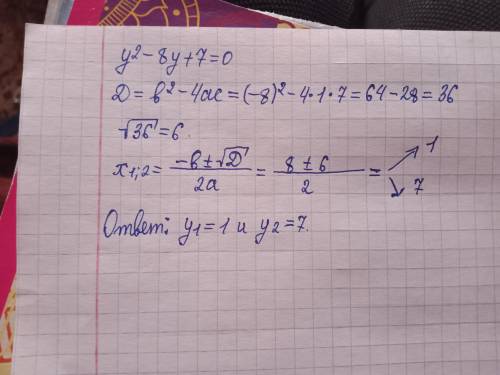 y² - 8y + 7 = 0
D = b² - 4ac = (-8)² - 4·1·7 = 64 - 28 = 36
√36 = 6.
x1;2 = (-b ± √D)/2a = (8 ± 6)/2 = ↗ 1 ↘ 7
Ответ: y1 = 1 и y2 = 7.